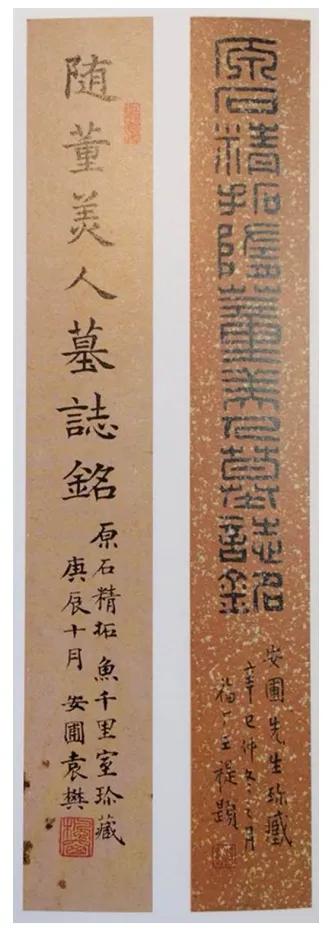 原石精拓隋董美人墓誌銘
安圃先生珍藏
辛巳仲冬之月
福厂王禔題
随董美人墓誌銘
原石精拓 魚千里室珍藏
庚辰十月 安圃袁樊